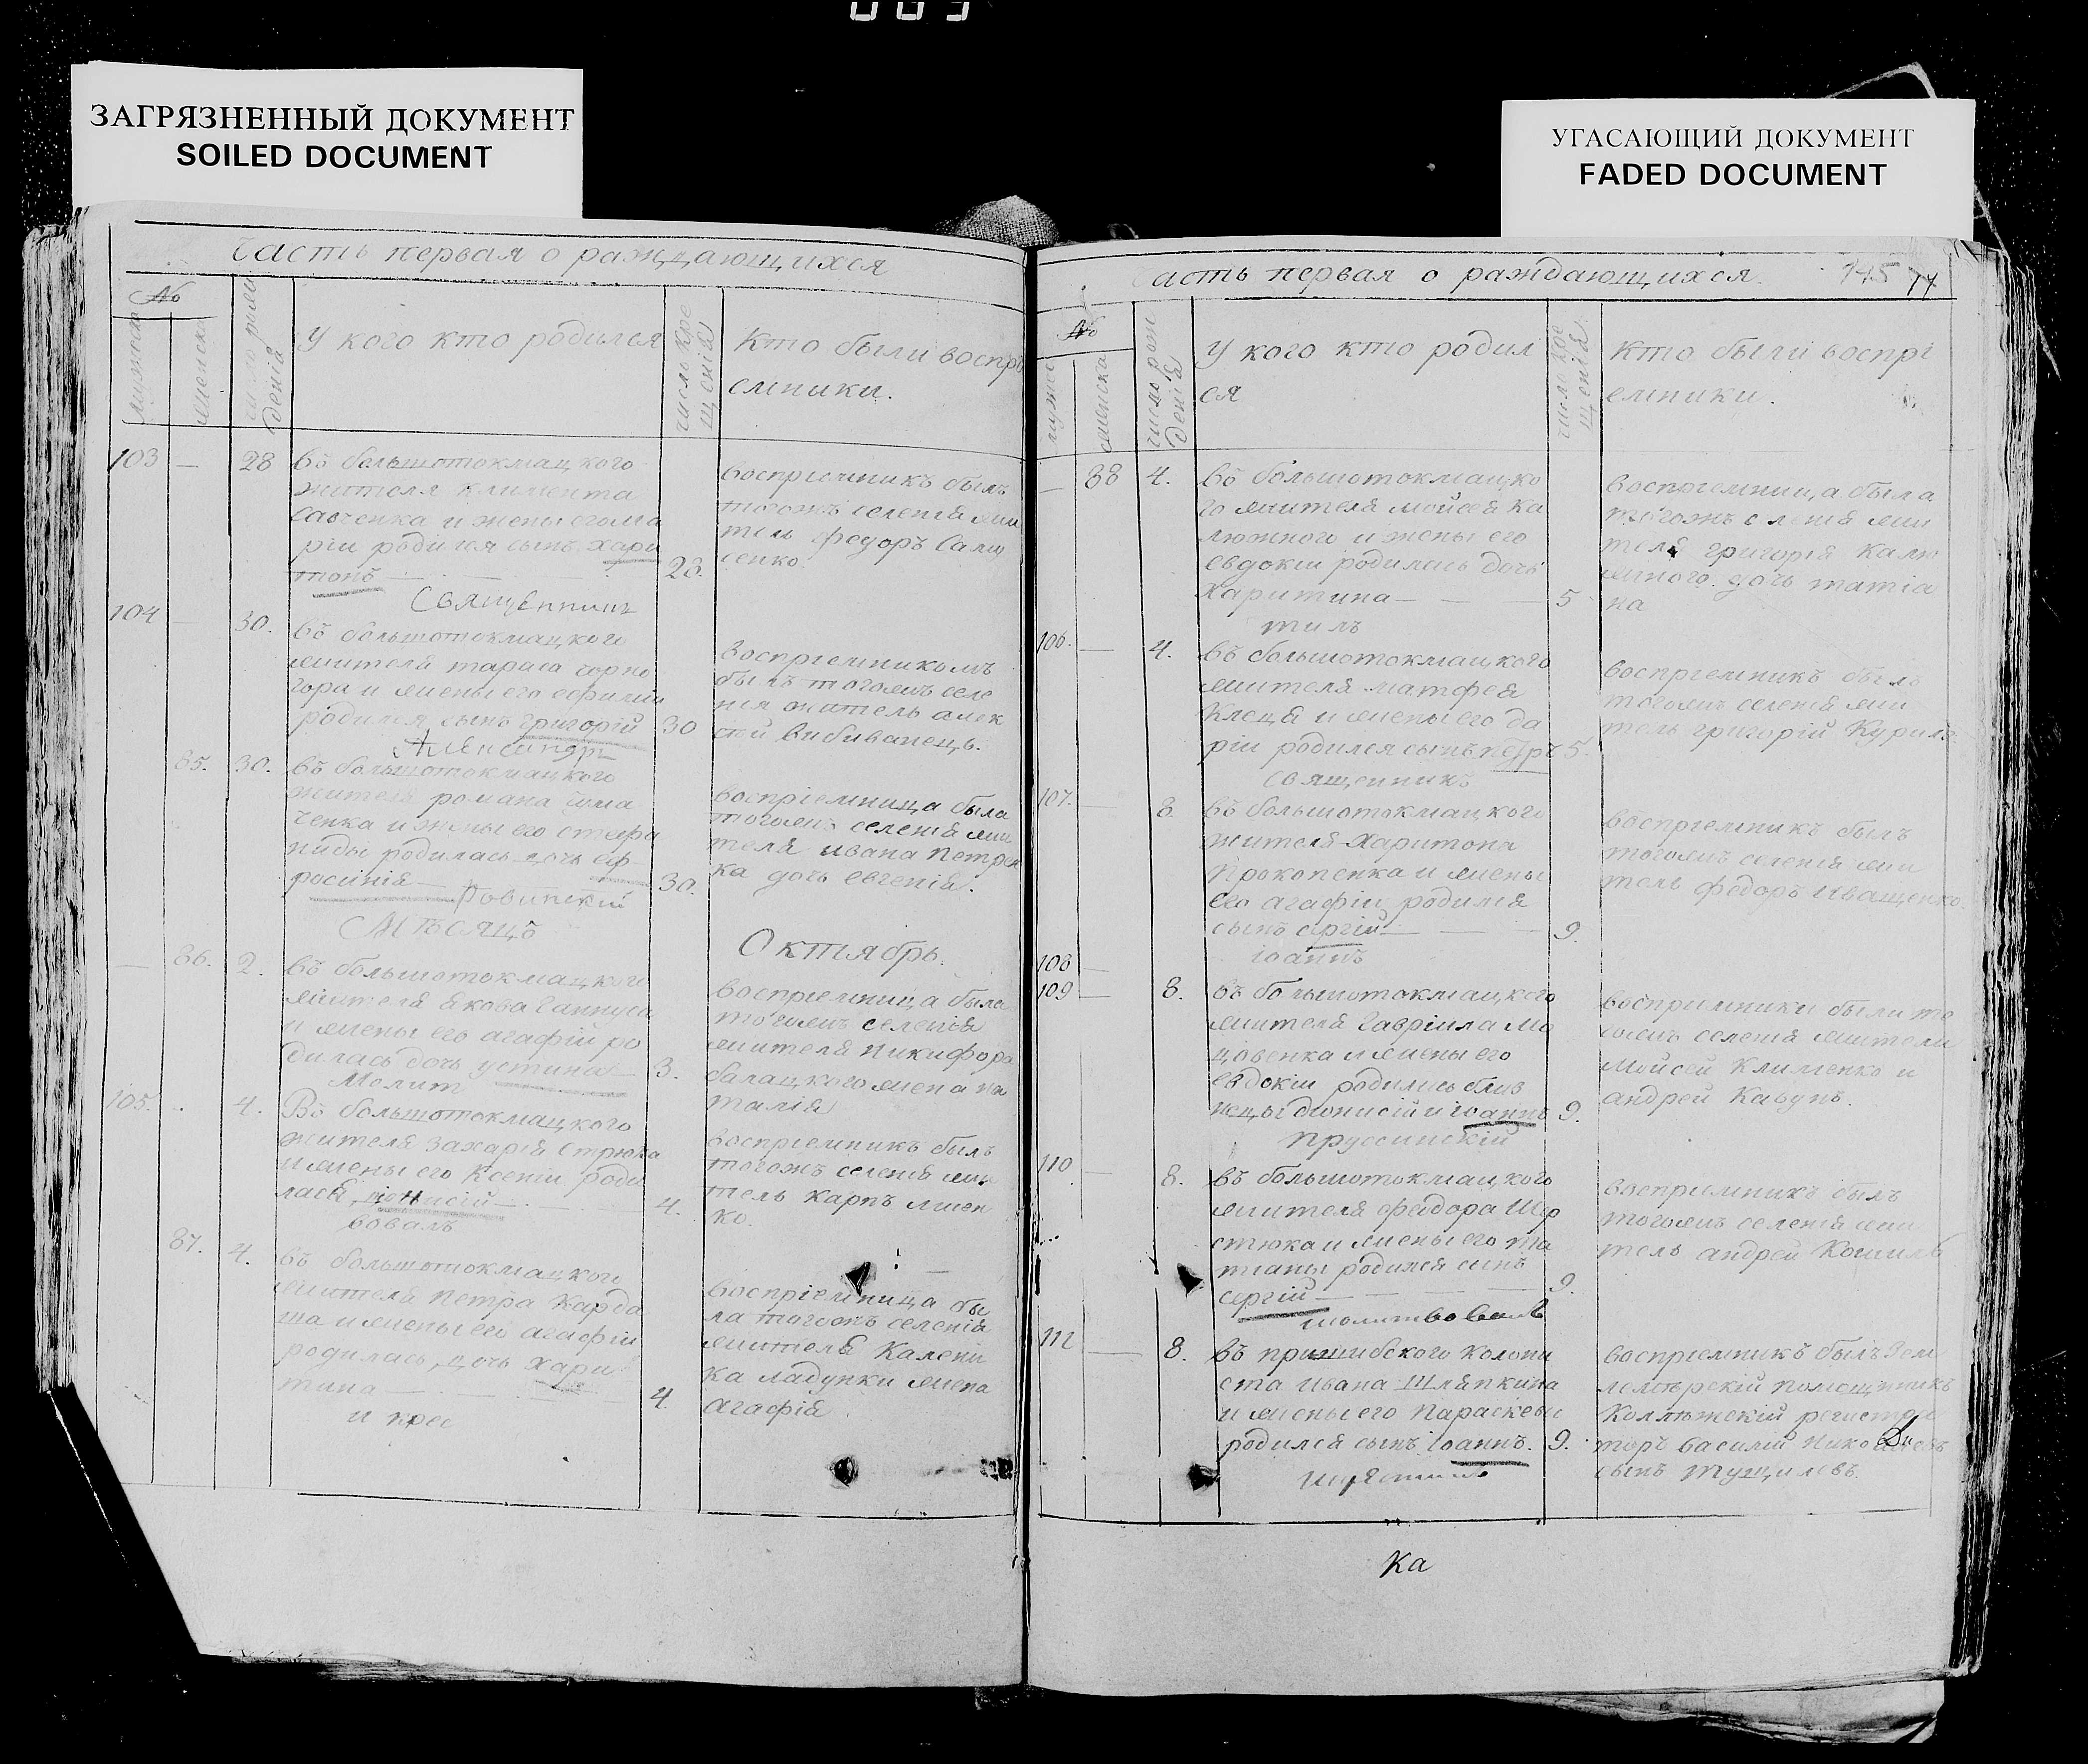 ЗАГРЯЗНЕННЫЙ ДОКУМЕНТ
SOILED DOCUMENT
УГАСАЮЩИЙ ДОКУМЕНТ
FADED DOCUMENT
Часть первая о раждающихся
№
У кого кто родился
Кто были воспрі
емники.
103 — 28 въ большотокмацкого
жителя климента
савченка и жены его ма
ріи родился сынъ хари
тонъ 28.
воспріемникъ былъ
тогожъ селенія жи
тель федоръ
Священникъ
104 — 30. въ большотокмацкого
жителя тараса чорно
гора и жены его
родился сынъ григорій 30
воспріемникомъ
былъ тогожъ селе
нія житель алек
сей вибиванецъ.
Александръ
85. 30. въ большотокмацкого
жителя романа
ченка и жены его стефа
ниды родилась дочь еф
росинія 30.
воспріемница была
тогожъ селенія жи
теля ивана петрен
ка дочь евгенія.
Ровинскій
Мѣсяцъ
Октябрь.
— 86. 2. въ большотокмацкого
жителя якова
и жены его агафіи ро
дилась дочь устина 3.
воспріемница была
тогожъ селенія
жителя никифора
балацкого жена на
талія
Молит
105. 4. Въ большотокмацкого
жителя захарія стрюка
и жены его ксеніи роди
лася, діонисій 4.
воспріемникъ былъ
тогожъ селенія жи
тель карпъ лисен
ко.
вовалъ
87. 4. въ большотокмацкого
жителя петра карда
ша и жены его агафіи
родилась дочь хари
тина 4.
воспріемница бы
ла тогожъ селенія
жителя калени
ка ладунки жена
агафія.
и крес
асть первая о раждающихся.
145 77
№
У кого кто родил
ся
Кто были воспрі
емники.
— 88 4. въ большотокмацко
го жителя мойсея ка
люжного и жены его
евдокіи родилась дочь
харитина — 5
воспріемница была
тогожъ селенія жи
теля григорія калю
жного дочь татіа
на
тилъ
106. — 4. въ большотокмацкого
жителя матфея
клеця и жены его да
ріи родился сынъ петръ 5.
воспріемникъ былъ
тогожъ селенія жи
тель григорій Курило
священникъ
107. — 8. въ большотокмацкого
жителя харитона
прокопенка и жены
его агафіи родился
сынъ сергій 9.
воспріемникъ былъ
тогожъ селенія жи
тель федоръ иващенко.
іоаннъ
108 —
109 — 8. въ большотокмацкого
жителя гавріила
и жены его
евдокіи родились близ
нецы діонисій и іоаннъ 9.
воспріемники были то
гожъ селенія жители
мойсей клименко и
андрей кавунъ.
пруссинскій
110 — 8. въ большотокмацкого
жителя феодора
стюка и жены его та
тіаны родился сынъ
сергій 9.
воспріемникъ былъ
тогожъ селенія жи
тель андрей
молитвовалъ
112 — 8. въ пришибского колони
ста ивана шляпкина
и жены его параскевы
родился сынъ іоаннъ. 9.
воспріемникъ былъ зем
лемѣрскій помощникъ
коллѣжскій регистра
торъ василій николаевъ
сынъ тущилевъ.
Ка